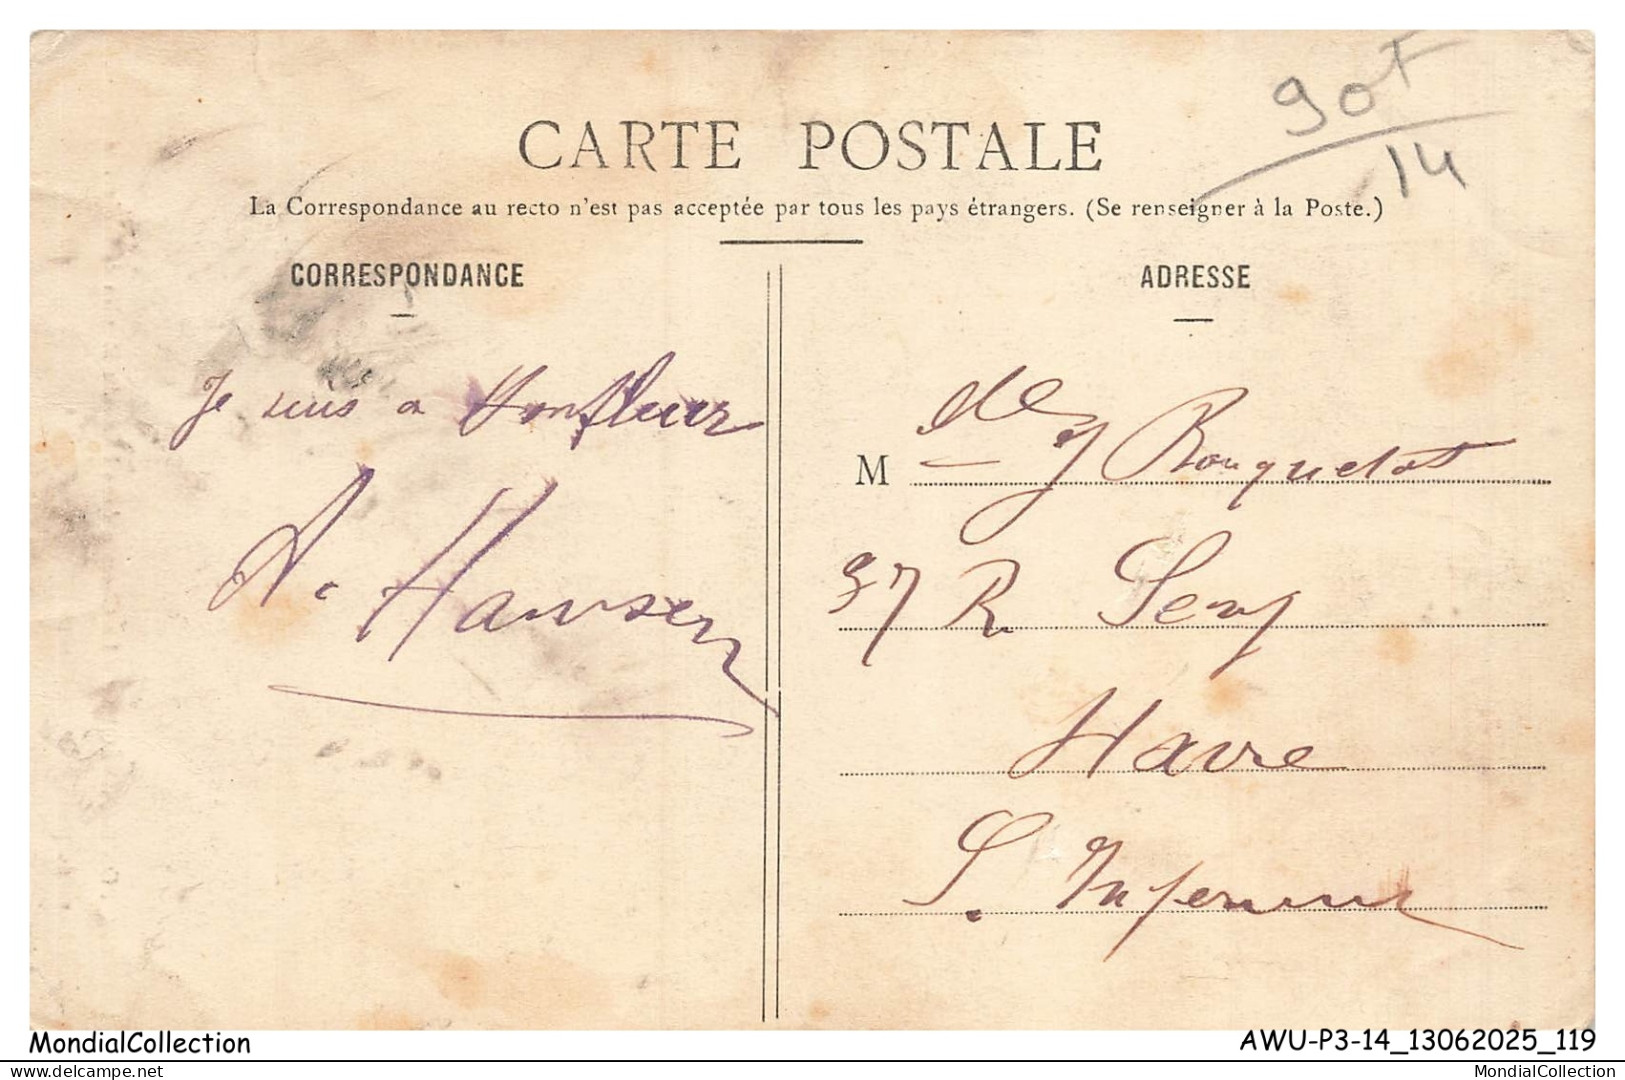 90F
14
CARTE POSTALE
La Correspondance au recto n'est pas acceptée par tous les pays étrangers. (Se renseigner à la Poste.)
CORRESPONDANCE
ADRESSE
Je suis a Honfleur
A. Hansen
M
37 R Sery
Havre
S. Inferieure
MondialCollection
AWU-P3-14_13062025_119
delcampe.net
MondialCollection